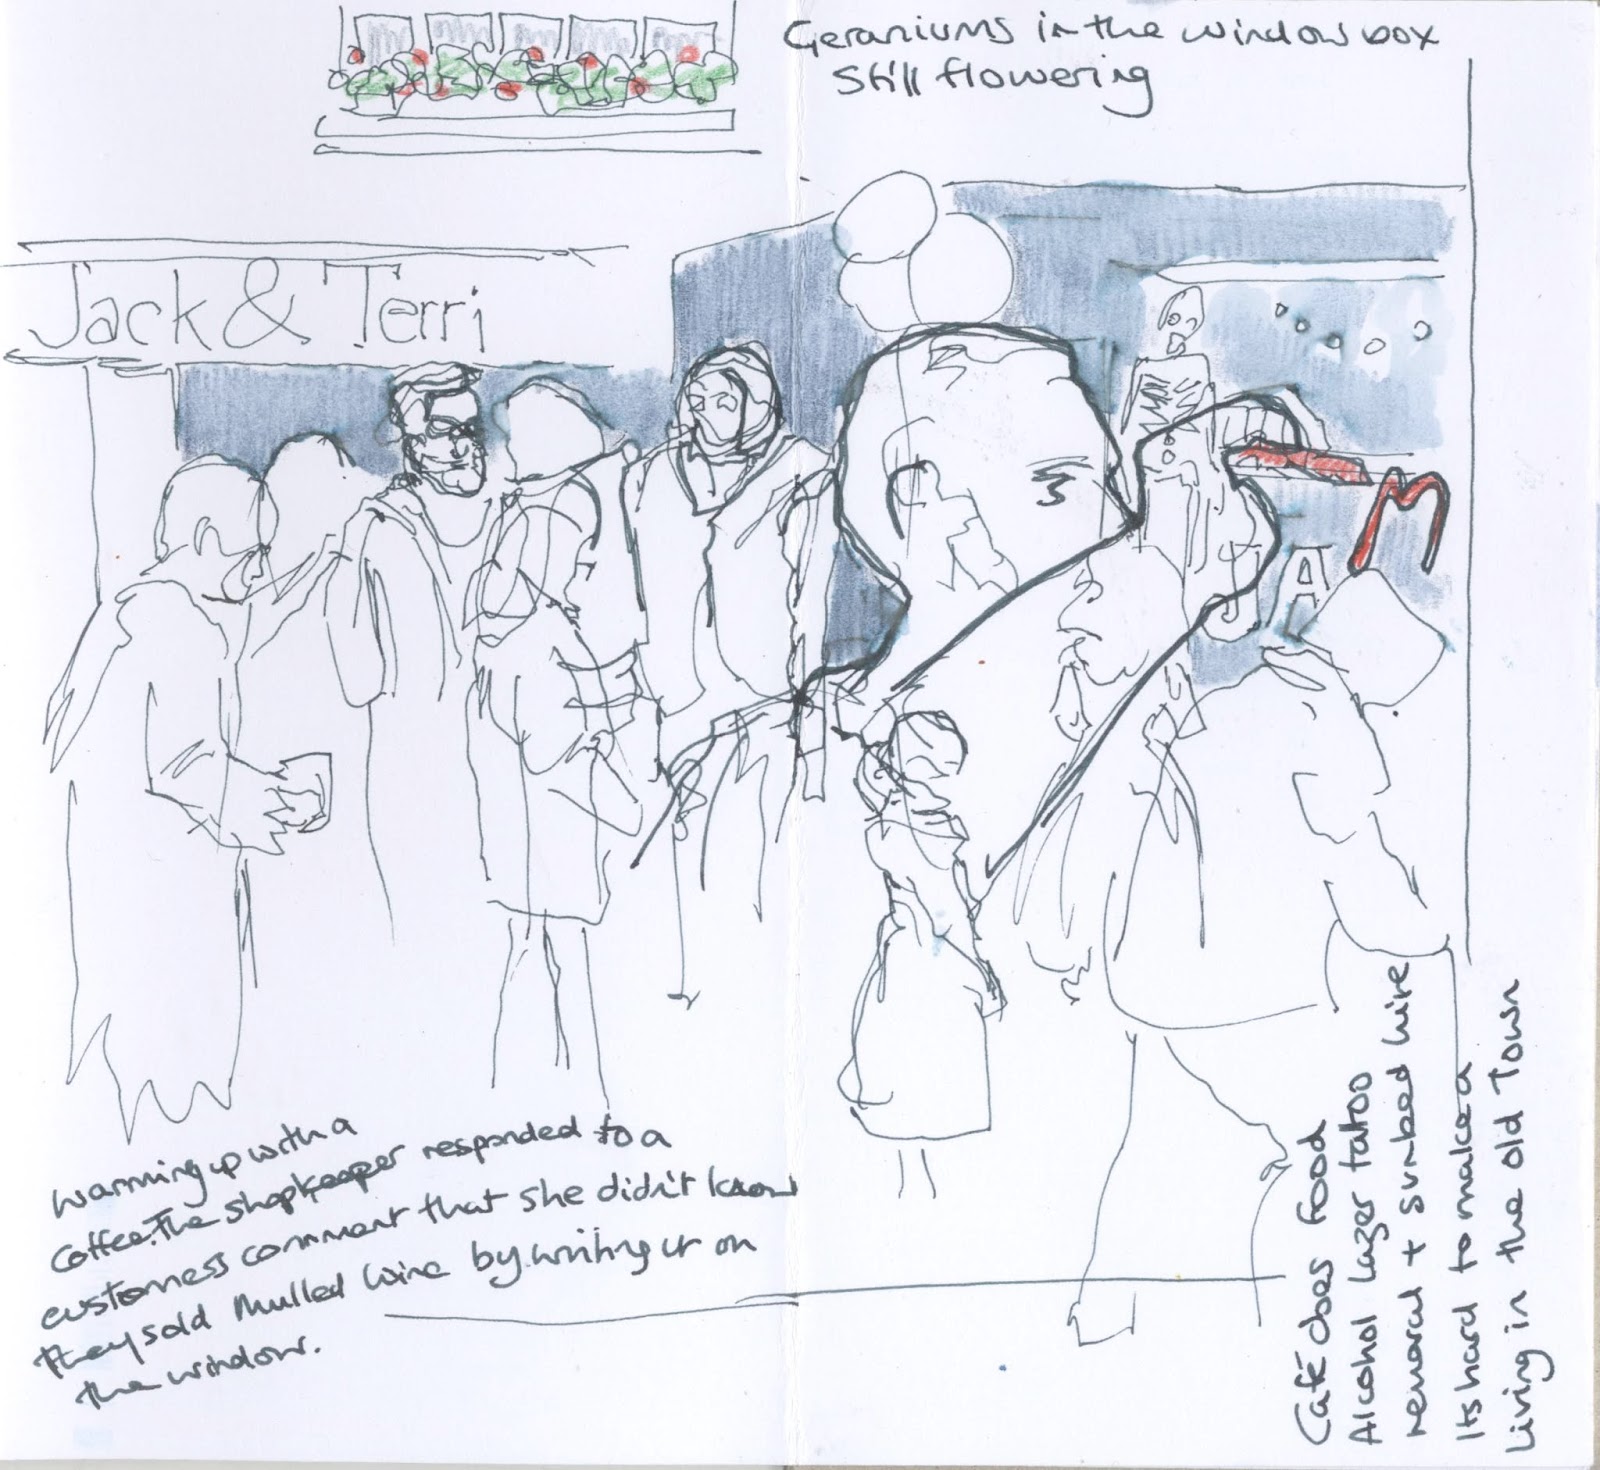 Geraniums in the window box
still flowering
Jack & Terri
M
A
warming up with a
coffee. The shopkeeper responded to a
customers comment that she didn't know
they sold mulled wine by writing it on
the window.
Café does food
Alcohol lazer tatoo
removal + sunbed hire
Its hard to make a
living in the old Town